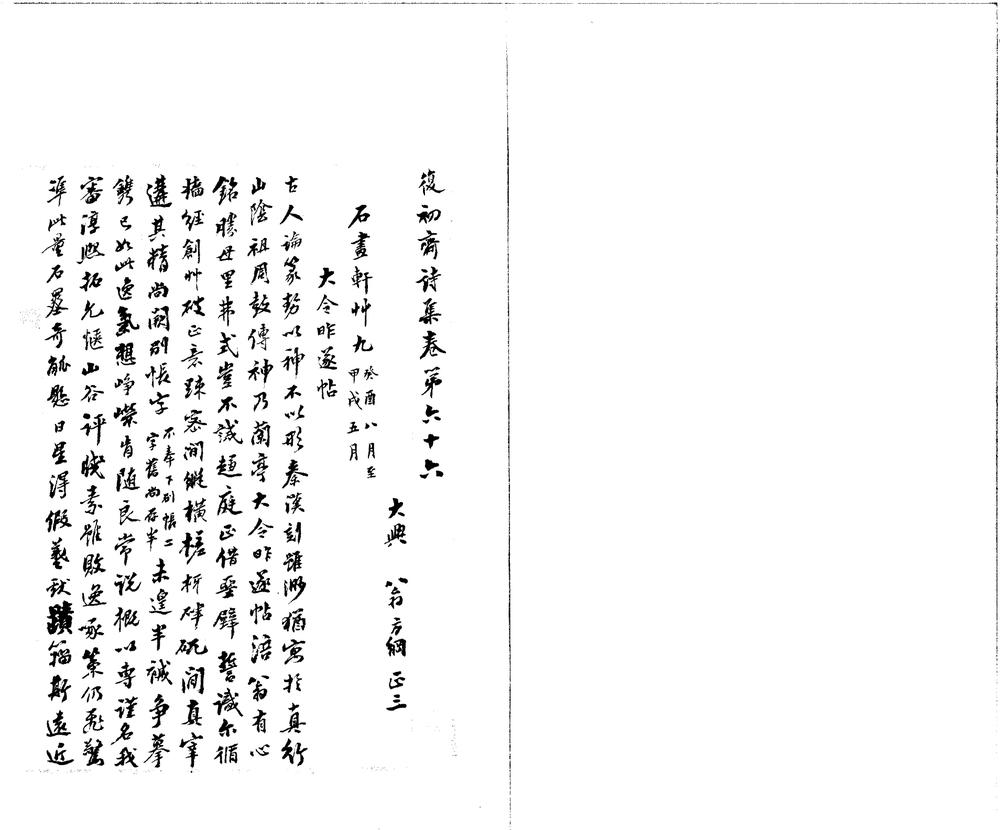 復初齋詩集卷第六十六
大興 翁方綱 正三
石畫軒艸九 癸酉八月至甲戌五月
大令昨遂帖
古人論篆勢以神不以形秦漢刻雖泐猶寓於真行
山陰祖周鼓傳神乃蘭亭大令昨遂帖涪翁有心
銘勝母里弗式豈不誠趨庭正借堊壁誓識爾循
牆經創艸破正意疎密間縱橫槎枒砰矹間真宰
遘其精尚闕別悵字 不奉下別悵二字舊尚存半 未遑半誠爭摹
鐫已如此逸氣想崢嶸肯隨良常說概以專謹名我
審淳熙拓允愜山谷評賤素雖敗逸啄策仍飛驚
準此量石墨奇觚懸日星得假藝 蹟籀斯遠近